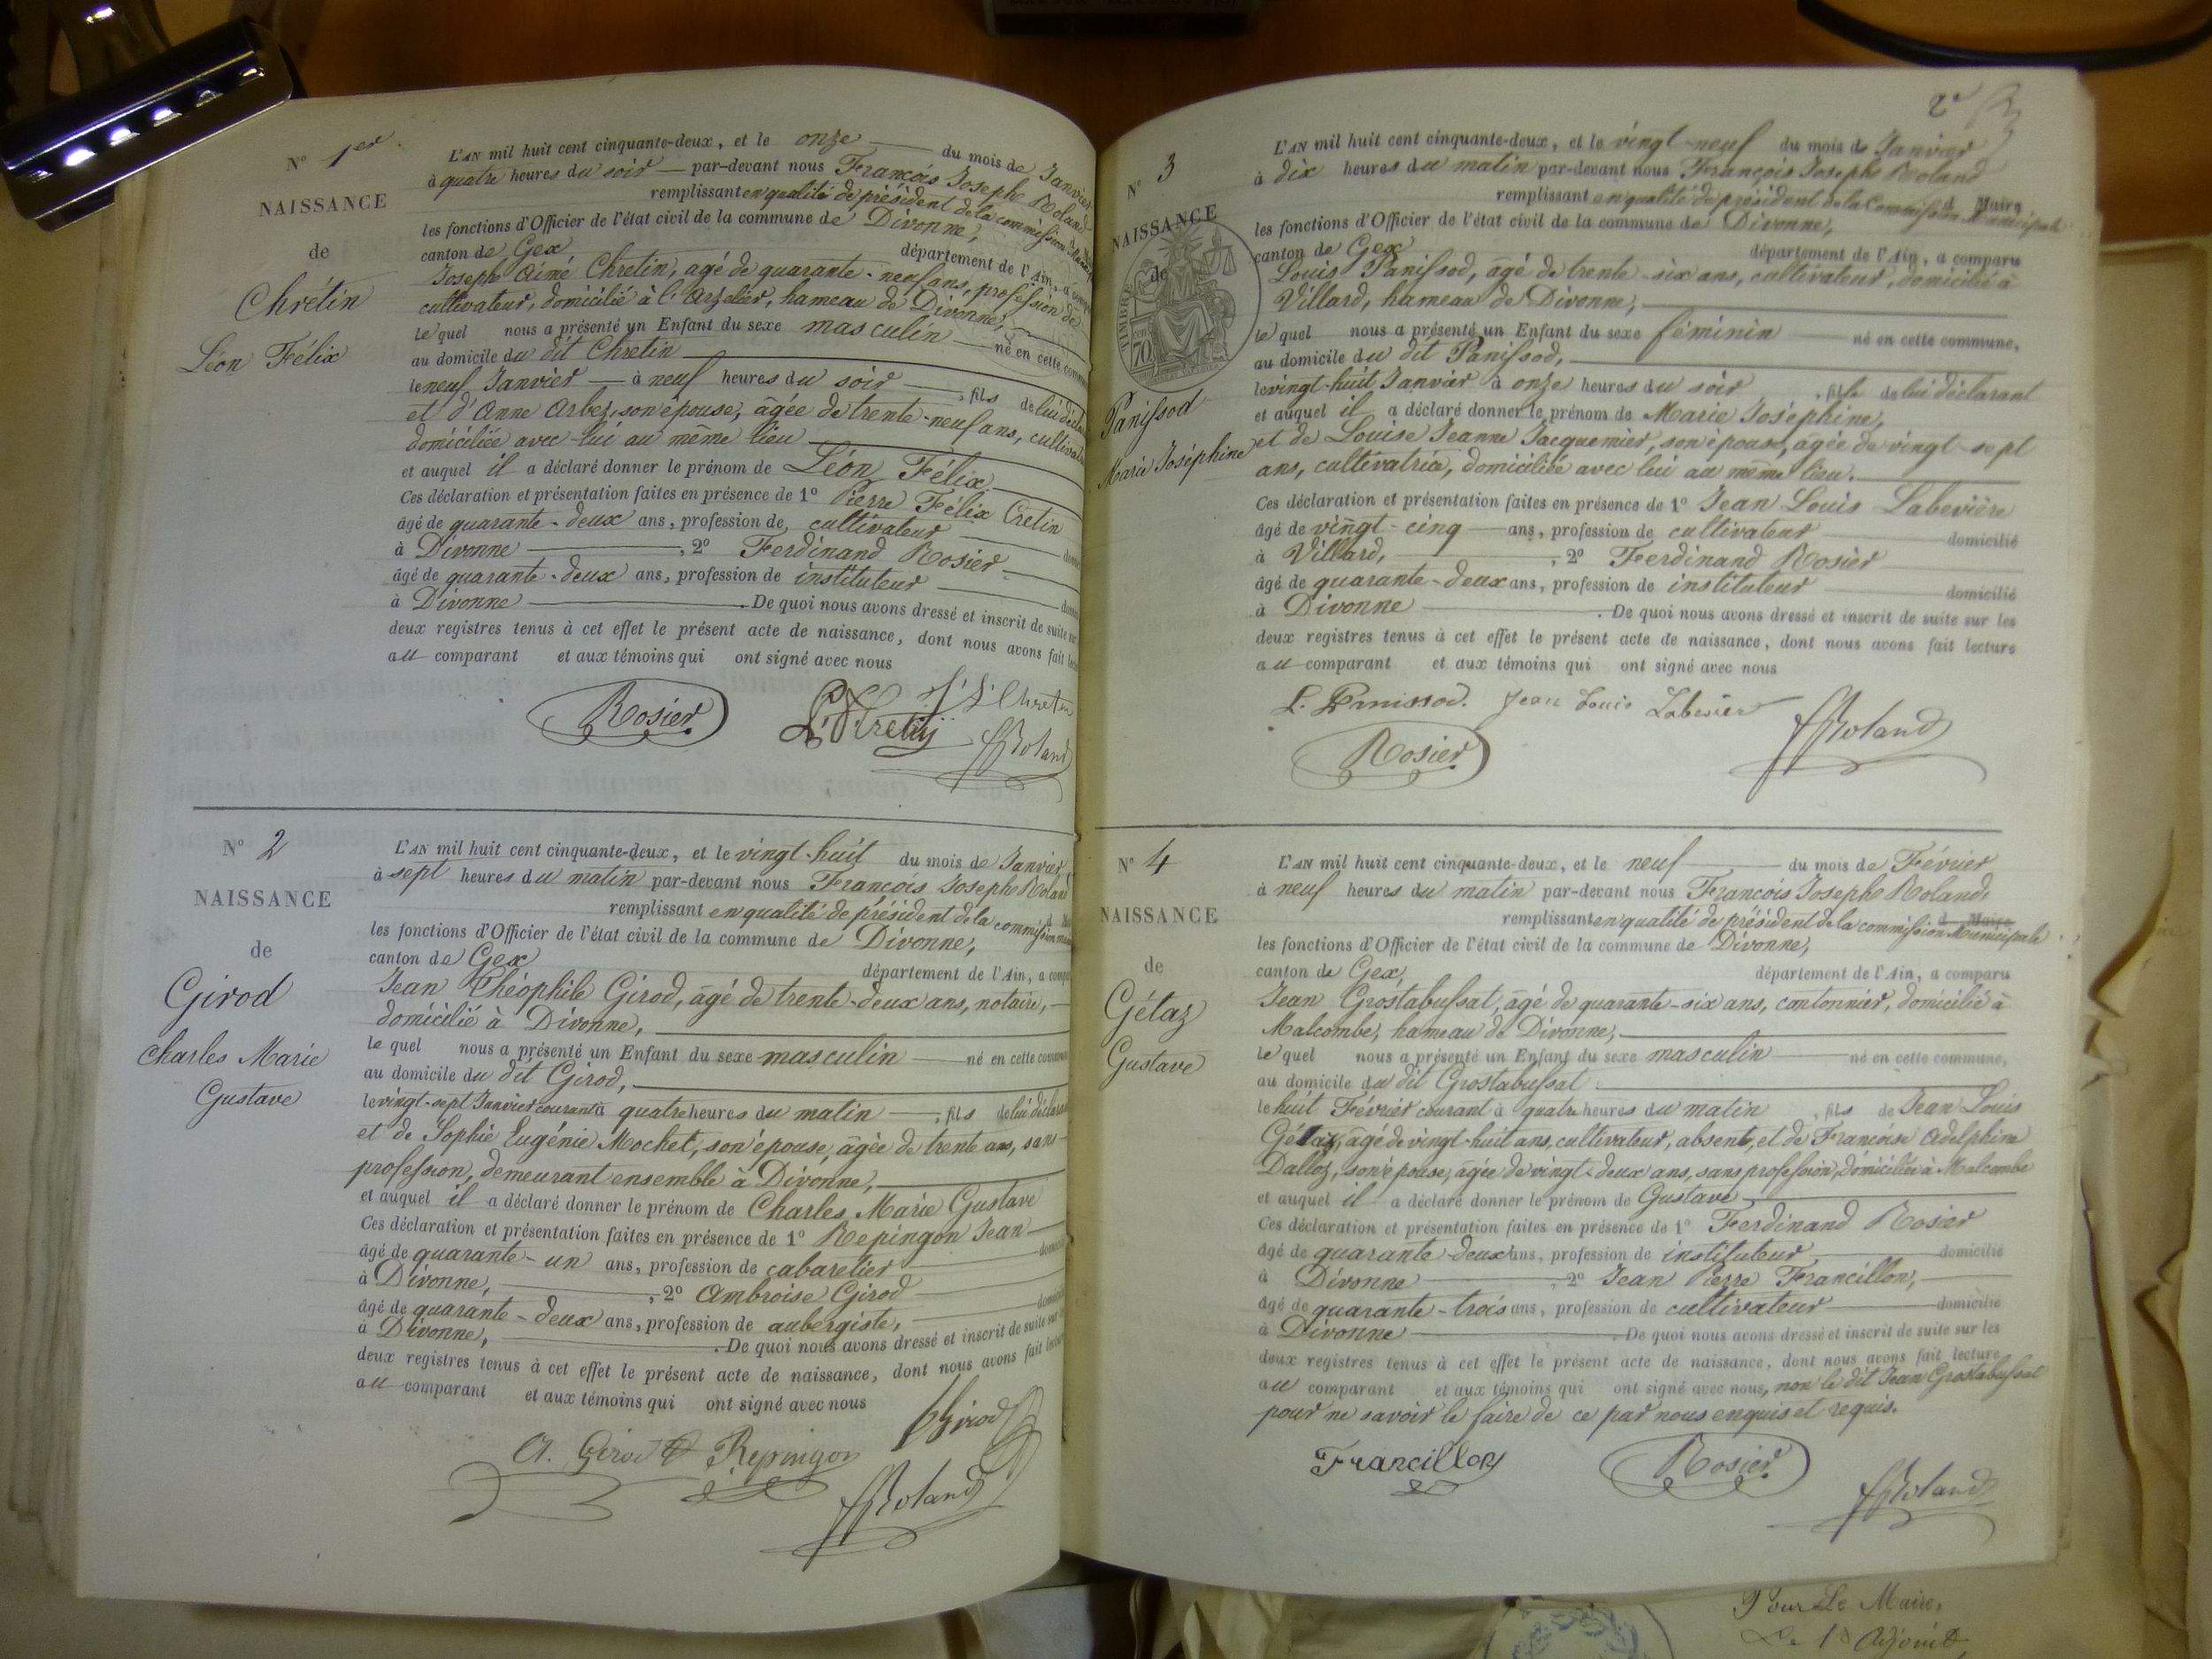 N° 1er
NAISSANCE
de
Chrétin
Léon Félix
L'AN mil huit cent cinquante-deux, et le onze du mois de Janvier
à quatre heures du soir par-devant nous François Joseph Roland
remplissant en qualité de président de la commission
les fonctions d'Officier de l'état civil de la commune de Divonne,
canton de Gex département de l'Ain, a
Joseph Aimé Chretin, agé de quarante-neuf ans, profession de
cultivateur, domicilié à l'Arzelier, hameau de Divonne,
le quel nous a présenté un Enfant du sexe masculin né en cette
au domicile du dit Chretin
le neuf Janvier à neuf heures du soir, fils de lui
et d'Anne Arbez, son épouse, âgée de trente-neuf ans,
domiciliée avec lui au même lieu
et auquel il a déclaré donner le prénom de Léon Félix
Ces déclaration et présentation faites en présence de 1° Pierre Félix Cretin
âgé de quarante-deux ans, profession de cultivateur
à Divonne, 2° Ferdinand Rosier
âgé de quarante-deux ans, profession de instituteur
à Divonne. De quoi nous avons dressé et inscrit de suite
deux registres tenus à cet effet le présent acte de naissance, dont nous avons fait
au comparant et aux témoins qui ont signé avec nous
Rosier
Chretin
Roland
N° 2
NAISSANCE
de
Girod
Charles Marie
Gustave
L'AN mil huit cent cinquante-deux, et le vingt-huit du mois de Janvier
à sept heures du matin par-devant nous François Joseph Roland
remplissant en qualité de président de la commission
les fonctions d'Officier de l'état civil de la commune de Divonne,
canton de Gex département de l'Ain, a
Jean Théophile Girod, âgé de trente-deux ans, notaire,
domicilié à Divonne,
le quel nous a présenté un Enfant du sexe masculin né en cette
au domicile du dit Girod,
le vingt-sept Janvier courant à quatre heures du matin, fils de lui
et de Sophie Eugénie Mochet, son épouse, âgée de trente ans, sans
profession, demeurant ensemble à Divonne,
et auquel il a déclaré donner le prénom de Charles Marie Gustave
Ces déclaration et présentation faites en présence de 1° Repingon Jean
âgé de quarante-un ans, profession de cabaretier
à Divonne, 2° Ambroise Girod
âgé de quarante-deux ans, profession de aubergiste,
à Divonne, De quoi nous avons dressé et inscrit de suite sur
deux registres tenus à cet effet le présent acte de naissance, dont nous avons fait
au comparant et aux témoins qui ont signé avec nous
Girod
A. Girod Repingon
Roland
2e
N° 3
NAISSANCE
de
TIMBRE
70
Panissod
Marie Joséphine
L'AN mil huit cent cinquante-deux, et le vingt-neuf du mois de Janvier
à dix heures du matin par-devant nous François Joseph Roland
remplissant en qualité de président de la Commission Municipale
les fonctions d'Officier de l'état civil de la commune de Divonne,
canton de Gex département de l'Ain, a comparu
Louis Panissod, âgé de trente-six ans, cultivateur, domicilié à
Villard, hameau de Divonne,
le quel nous a présenté un Enfant du sexe féminin né en cette commune,
au domicile du dit Panissod,
le vingt-huit Janvier à onze heures du soir, fille de lui déclarant
et auquel il a déclaré donner le prénom de Marie Joséphine,
et de Louise Jeanne Jacquemier, son épouse, agée de vingt-sept
ans, cultivatrice, domiciliée avec lui au même lieu.
Ces déclaration et présentation faites en présence de 1° Jean Louis Labevière
âgé de vingt-cinq ans, profession de cultivateur domicilié
à Villard, 2° Ferdinand Rosier
âgé de quarante-deux ans, profession de instituteur domicilié
à Divonne. De quoi nous avons dressé et inscrit de suite sur les
deux registres tenus à cet effet le présent acte de naissance, dont nous avons fait lecture
au comparant et aux témoins qui ont signé avec nous
L. Panissod. Jean Louis Labevière
Roland
Rosier
N° 4
NAISSANCE
de
Gétaz
Gustave
L'AN mil huit cent cinquante-deux, et le neuf du mois de Février
à neuf heures du matin par-devant nous François Joseph Roland,
remplissant en qualité de président de la commission Municipale
les fonctions d'Officier de l'état civil de la commune de Divonne,
canton de Gex, département de l'Ain, a comparu
Jean Grostabussat, âgé de quarante-six ans, cantonnier, domicilié à
Malcombe, hameau de Divonne,
le quel nous a présenté un Enfant du sexe masculin né en cette commune,
au domicile du dit Grostabussat
le huit Février courant à quatre heures du matin, fils de Jean Louis
Gétaz, âgé de vingt-huit ans, cultivateur, absent, et de Françoise Adelphine
Dalloz, son épouse, agée de vingt-deux ans, sans profession, domiciliée à Malcombe
et auquel il a déclaré donner le prénom de Gustave
Ces déclaration et présentation faites en présence de 1° Ferdinand Rosier
âgé de quarante-deux ans, profession de instituteur domicilié
à Divonne, 2° Jean Pierre Francillon,
âgé de quarante-trois ans, profession de cultivateur domicilié
à Divonne. De quoi nous avons dressé et inscrit de suite sur les
deux registres tenus à cet effet le présent acte de naissance, dont nous avons fait lecture
au comparant et aux témoins qui ont signé avec nous, non le dit Jean Grostabussat
pour ne savoir le faire de ce par nous enquis et requis.
Francillon
Rosier
Roland
Pour Le Maire,
Le 1er Adjoint,